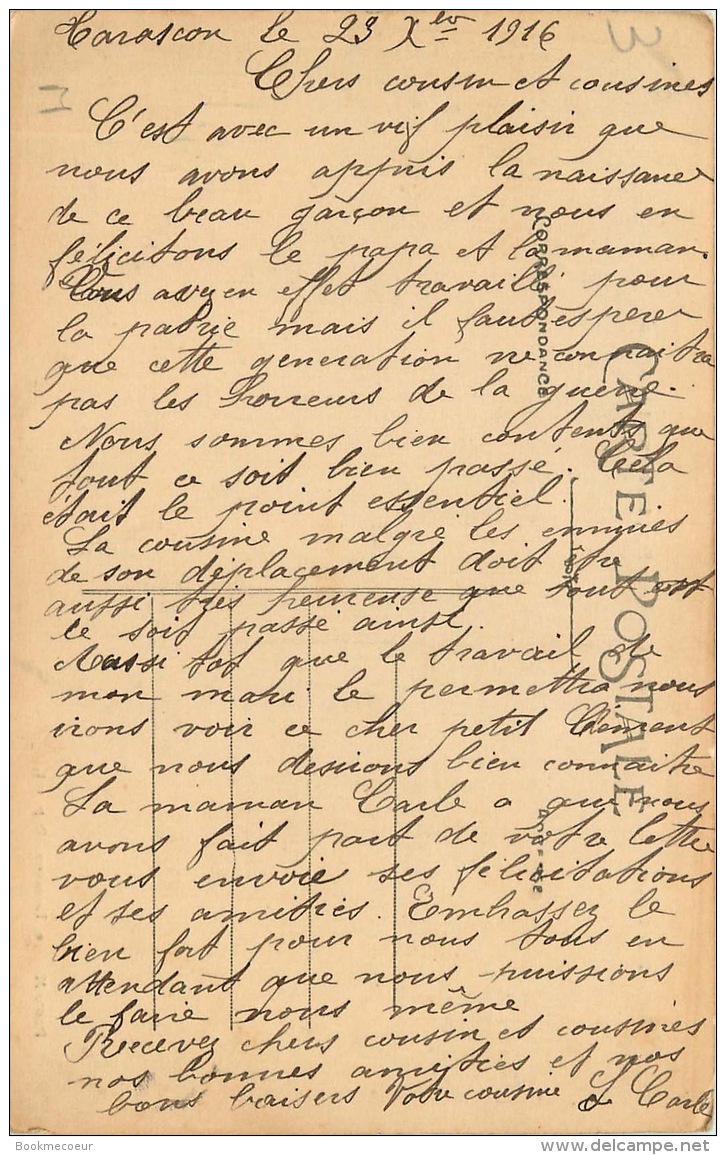 Tarascon le 23 Xbre 1916
Chers cousin et cousines
C'est avec un vif plaisir que
nous avons appris la naissance
de ce beau garçon et nous en
félicitons le papa et la maman.
Vous avez en effet travaillé pour
la patrie mais il faut esperer
que cette generation ne connaitra
pas les horreurs de la guerre.
Nous sommes bien contents que
tout ce soit bien passé. Cela
était le point essentiel.
La cousine malgre les ennuies
de son déplacement doit être
aussi très heureuse que tout
ce soit passé ainsi.
Aussi tot que le travail de
mon mari le permettra nous
irons voir ce cher petit Clément
que nous desirons bien connaitre
La maman Carle a qui nous
avons fait part de votre lettre
vous envoie ses félicitations
et ses amitiés. Embrassez le
bien fort pour nous tous en
attendant que nous puissions
le faire nous même
Recevez chers cousin et cousines
nos bonnes amitiés et nos
bons baisers Votre cousine L Carle
CARTE POSTALE
CORRESPONDANCE
ADRESSE
Bookmecoeur
www.delcampe.net